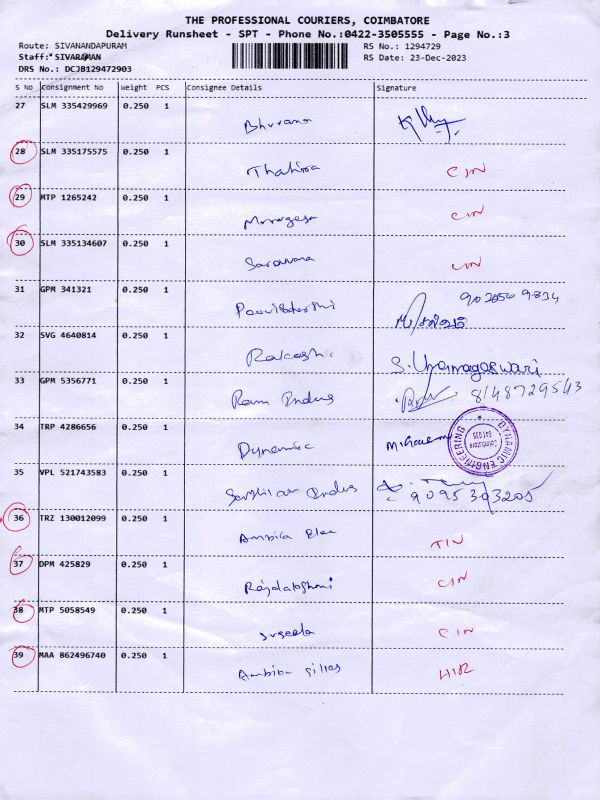 THE PROFESSIONAL COURIERS, COIMBATORE
Delivery Runsheet - SPT - Phone No.:0422-3505555 - Page No.:3
Route: SIVANANDAPURAM RS No.: 1294729
Staff: SIVARAMAN RS Date: 23-Dec-2023
DRS No.: DCJB129472903
S No Consignment No Weight PCS Consignee Details Signature
27 SLM 335429969 0.250 1 Bhuvana
28 SLM 335175575 0.250 1 Thahira CIN
29 MTP 1265242 0.250 1 Murugesa CIN
30 SLM 335134607 0.250 1 Saravana CIN
31 GPM 341321 0.250 1
32 SVG 4640814 0.250 1 Rakesh. S. Umamageswari
33 GPM 5356771 0.250 1 Ram Indus 8148729543
34 TRP 4286656 0.250 1 Dynamic
DYNAMIC ENGINEERING
Coimbatore
35 VPL 521743583 0.250 1 Indus 9095303205
36 TRZ 130012099 0.250 1 Ambika Elec TIN
37 DPM 425829 0.250 1 Rajalakshmi CIN
38 MTP 5058549 0.250 1 Suseela CIN
39 MAA 862496740 0.250 1 Ambika